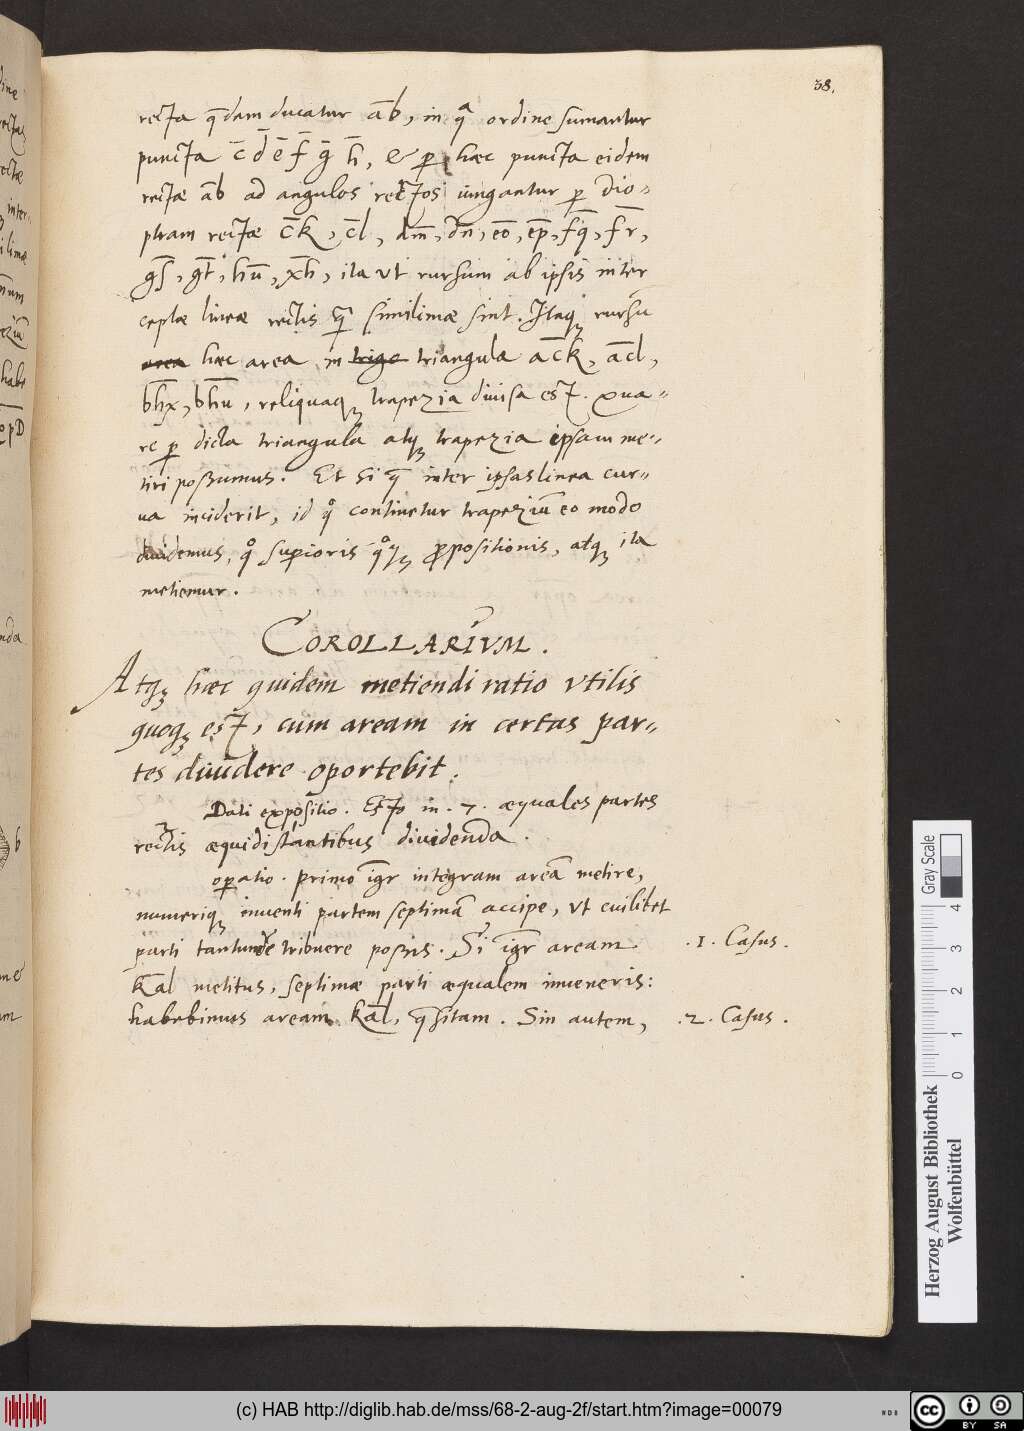 38.
recta q̄dam ducatur a̅b̅, in qª ordine sumantur
puncta c̅ d̅ e̅ f̅ g̅ h̅, & p̱ hæc puncta eidem
rectæ a̅b̅ ad angulos rectos iungantur p̱ dio-
ptram rectæ c̅k̅, c̅l̅, d̅m̅, d̅n̅, e̅o̅, e̅p̅, f̅q̅, f̅r̅,
g̅s̅, g̅t̅, h̅u̅, x̅h̅, ita vt rursum ab ipsis inter
ceptæ lineæ rectis q̄ simillimæ sint. Itaqꝫ rursū
area hæc area in trigo triangula a̅c̅k̅, a̅c̅l̅,
b̅h̅x̅, b̅h̅u̅, reliquaqꝫ trapezia diuisa est. Qua-
re p̱ dicta triangula atqꝫ trapezia ipsam me-
tiri possumus. Et si q̄ inter ipsas linea cur-
ua inciderit, id qͦ continetur trapeziū eo modo
diuidemus, qͦ superioris qͦqꝫ ꝓpositionis, atqꝫ ita
metiemur.
COROLLARIVM.
Atqꝫ hæc quidem metiendi ratio vtilis
quoqꝫ est, cum aream in certas par-
tes diuidere oportebit.
Dati expositio. Esto in .7. æquales partes
rectis æquidistantibus diuidenda.
op̱atio. primo igr̄ integram areā metire,
numeriqꝫ inuenti partem septimā accipe, vt cuilibet
parti tantundē tribuere possis. Si igr̄ aream
k̅a̅l̅ metitus, septimæ parti æqualem inueneris:
habebimus aream k̅a̅l̅, q̄sitam. Sin autem,
.1. Casus.
.2. Casus.
Gray Scale
0 1 2 3 4
Herzog August Bibliothek
Wolfenbüttel
(c) HAB http://diglib.hab.de/mss/68-2-aug-2f/start.htm?image=00079
cc BY SA